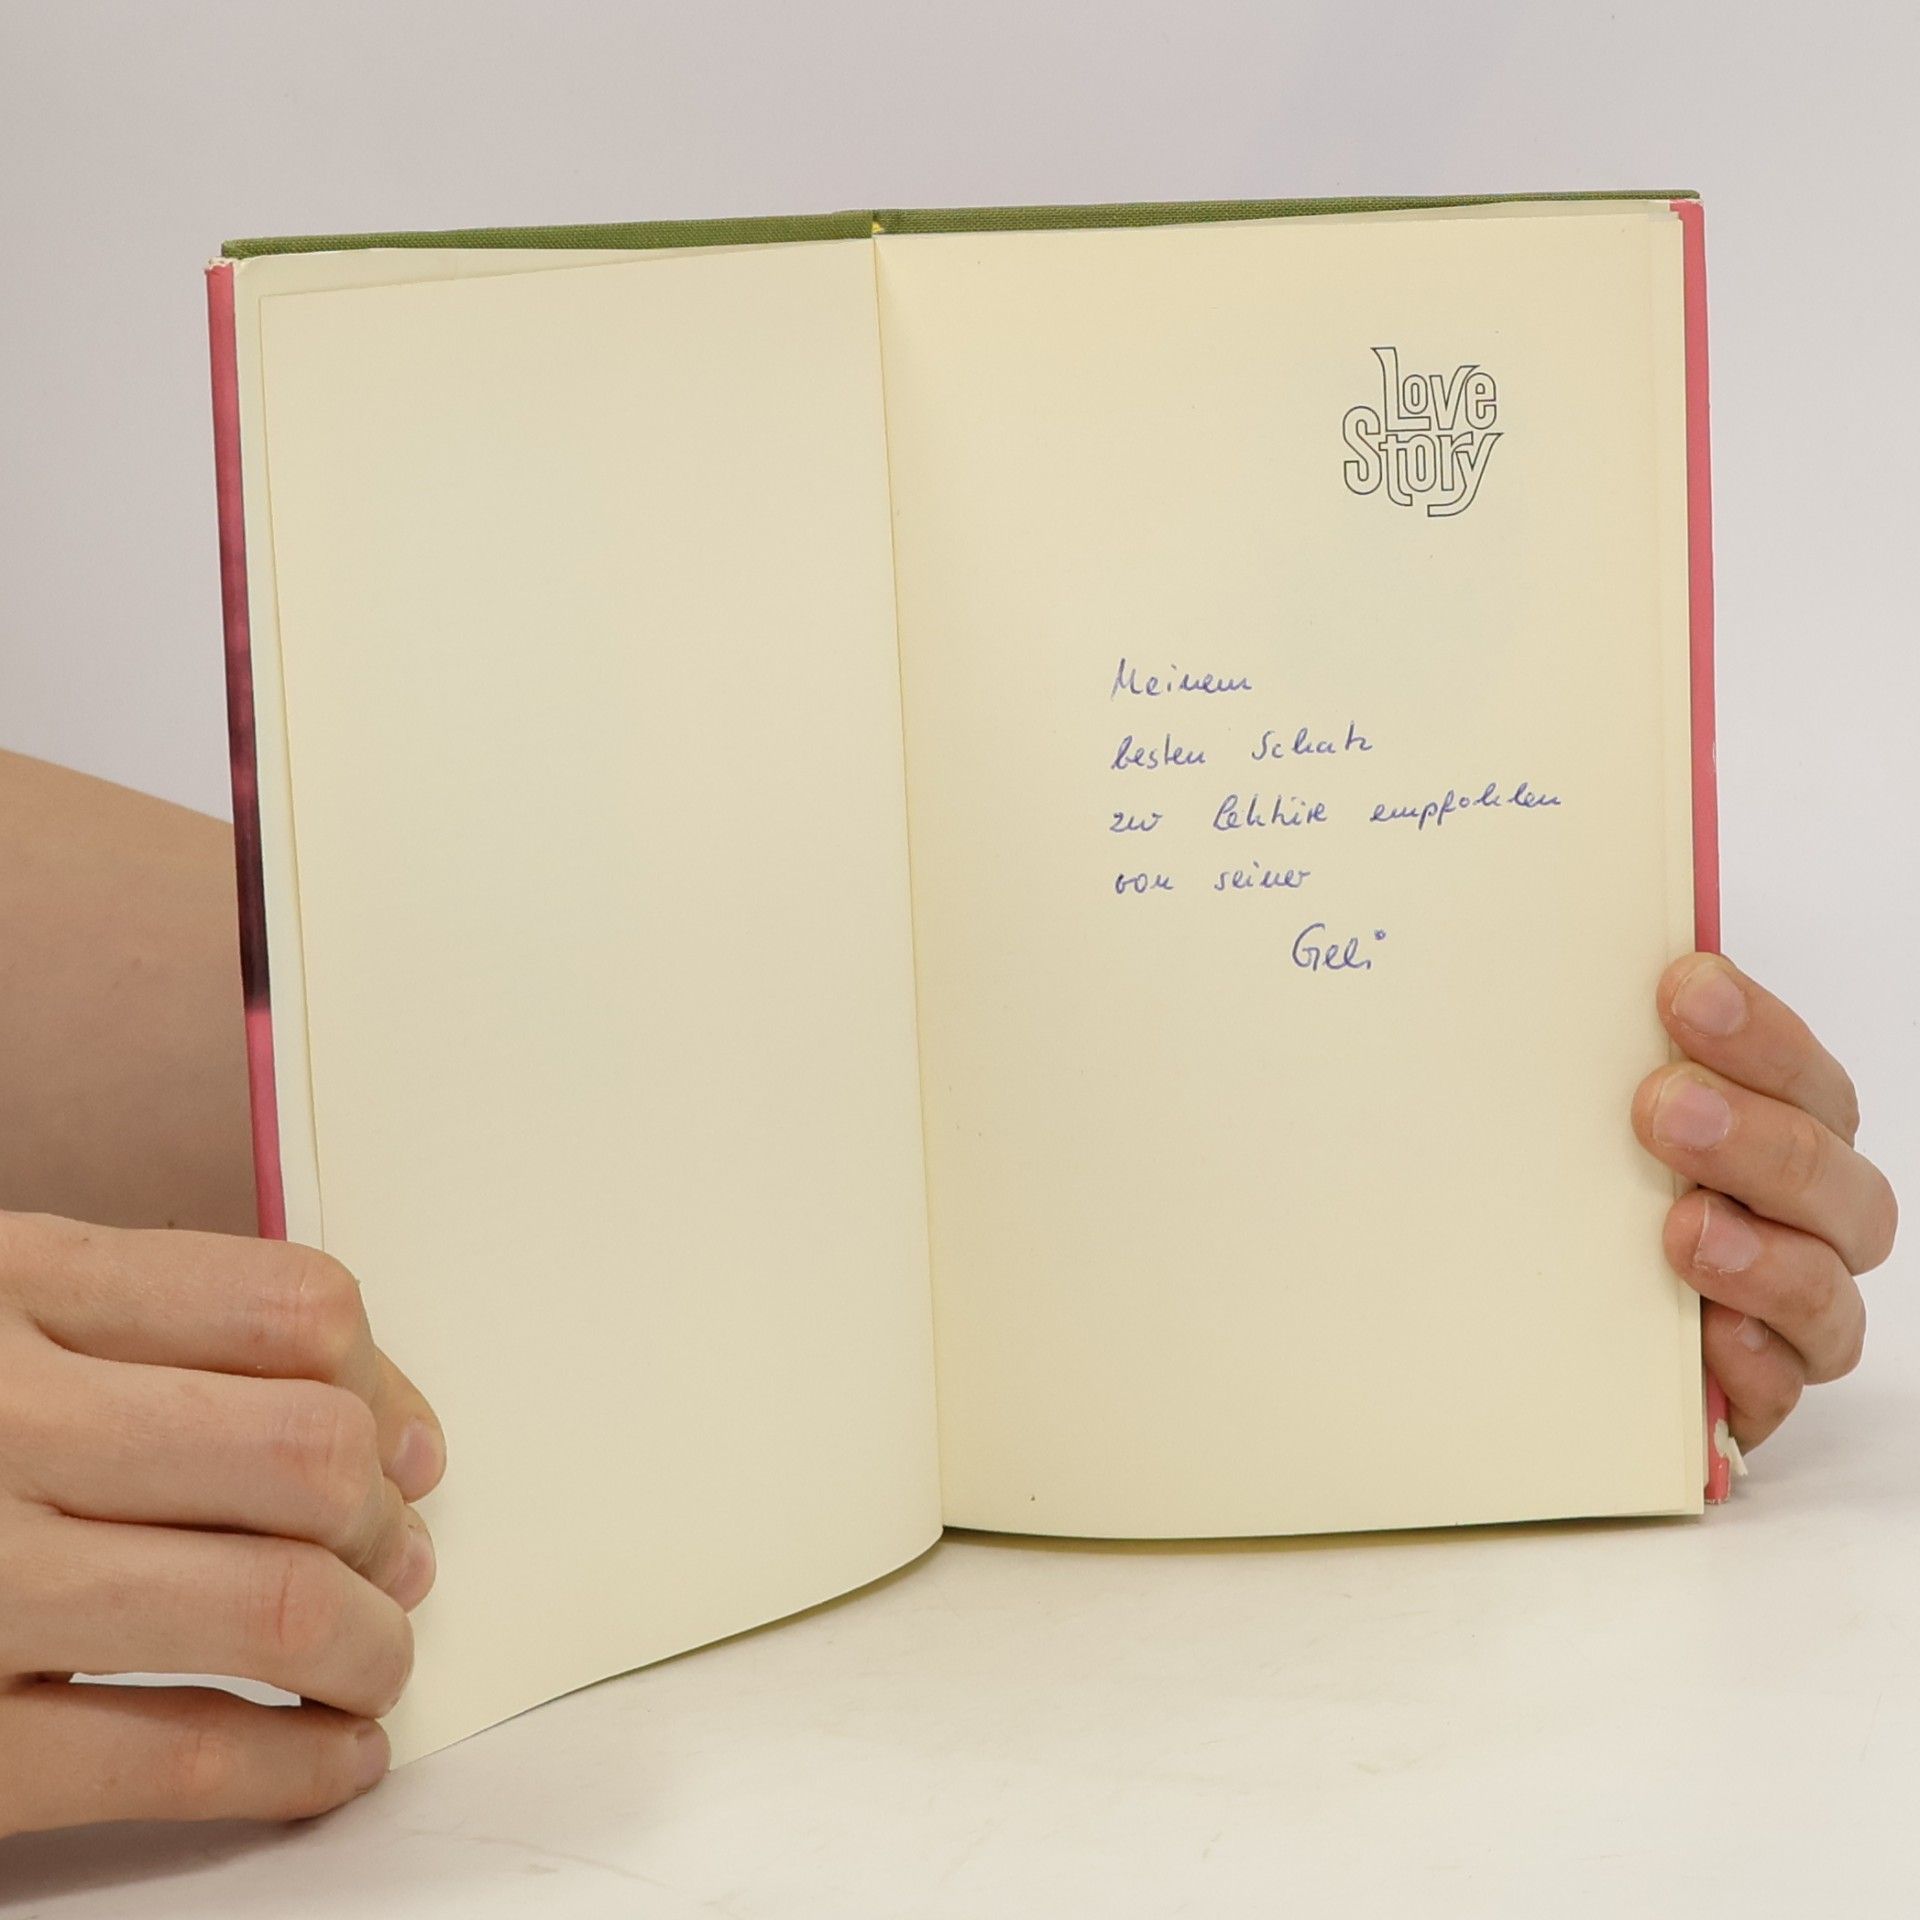 Love
Story
Meinem
besten Schatz
zur Lektüre empfohlen
von seiner
Geli